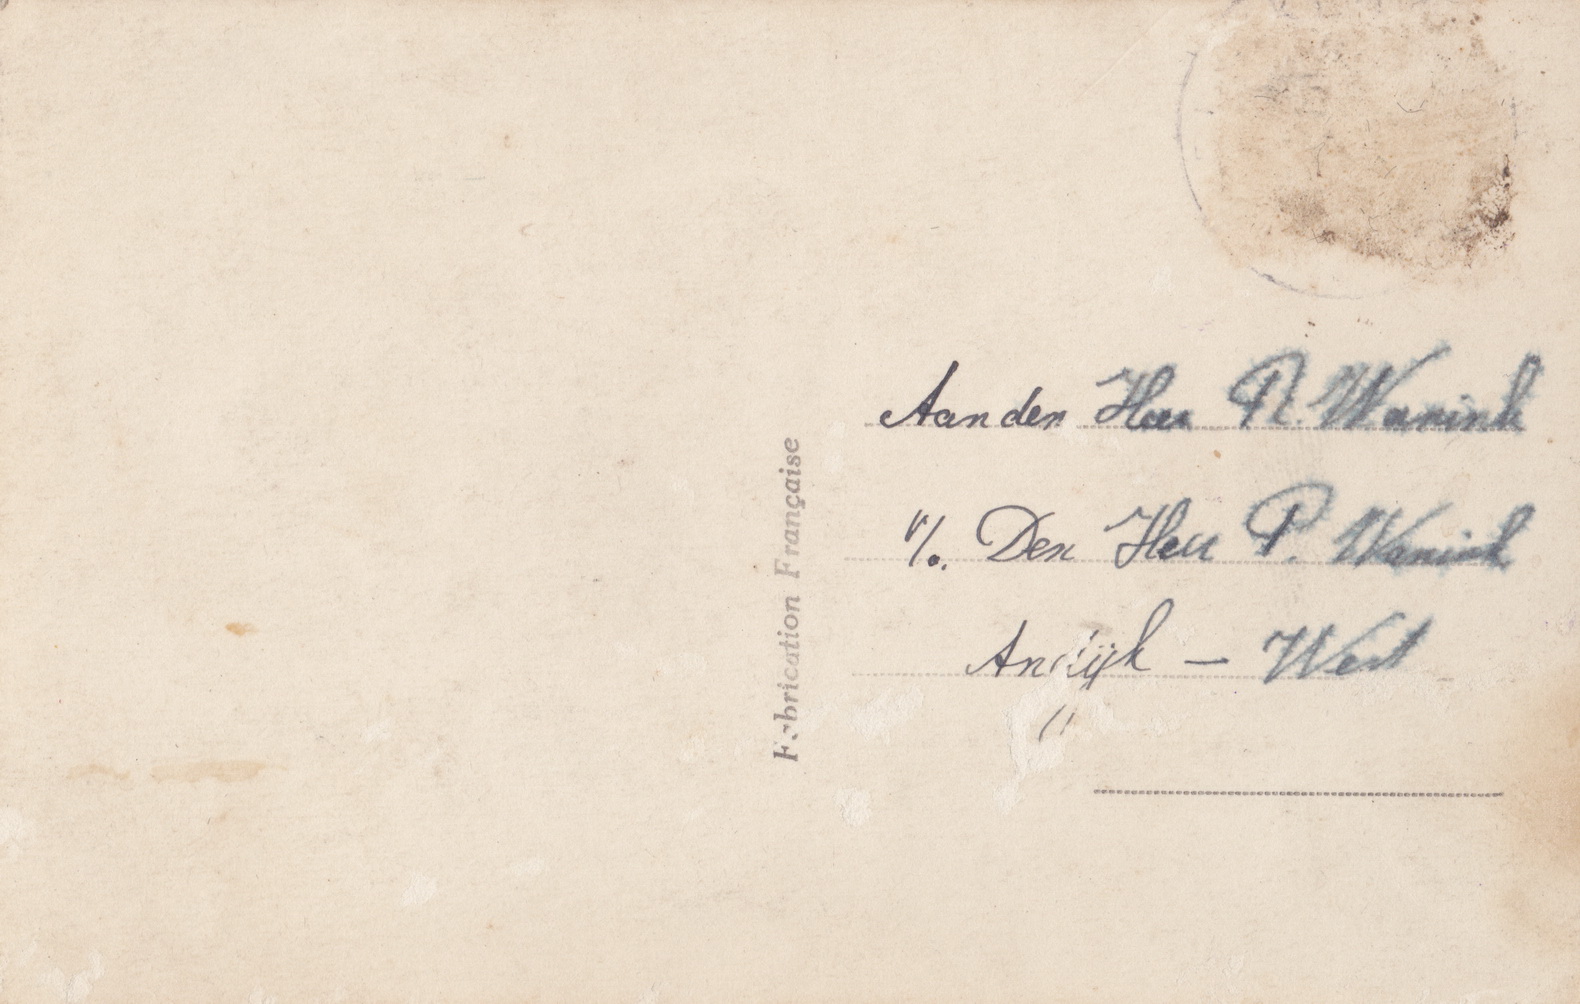 Aan den Heer N. Wanink
p/o. Den Heer P. Wanink
Andijk — West
Fabrication Française